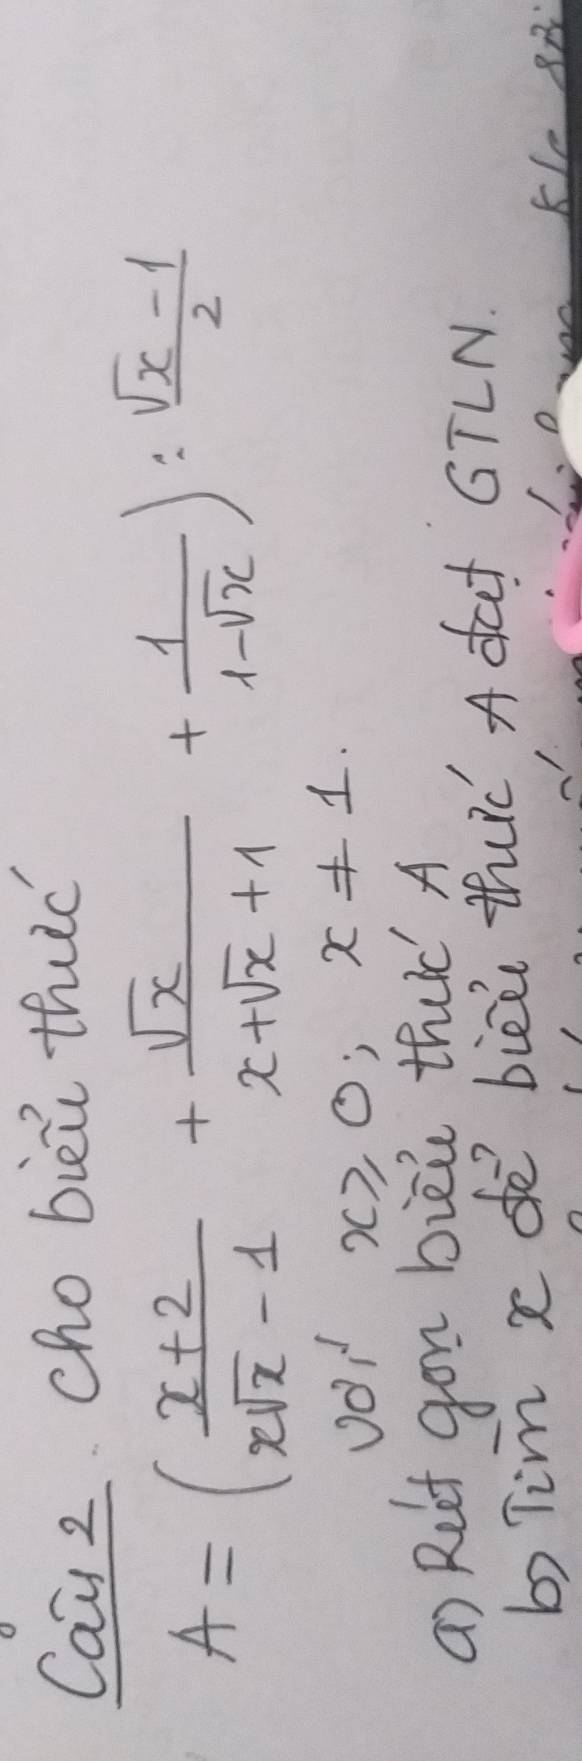 Câu 2. Cho biểu thức
A = (\frac{x+2}{x\sqrt{x}-1} + \frac{\sqrt{x}}{x+\sqrt{x}+1} + \frac{1}{1-\sqrt{x}}) : \frac{\sqrt{x}-1}{2}
với x ≥ 0; x ≠ 1.
a) Rút gọn biểu thức A
b) Tìm x để biểu thức A đạt GTLN.